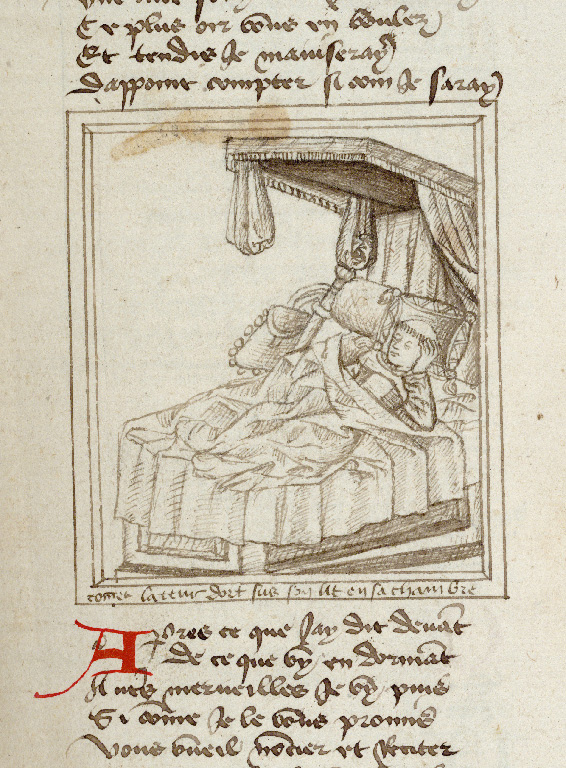 Ce plus oir vous en voulez
Et tendis Je maviseray
Dappoint compter si com Je saray
comet lateur dort sus son lit en sa chambre
Apres ce que Jay dit devat
De ce que vy en dormat
merveilles Je vy puis
Si come Je le vous promis
Vous vueil et Reciter